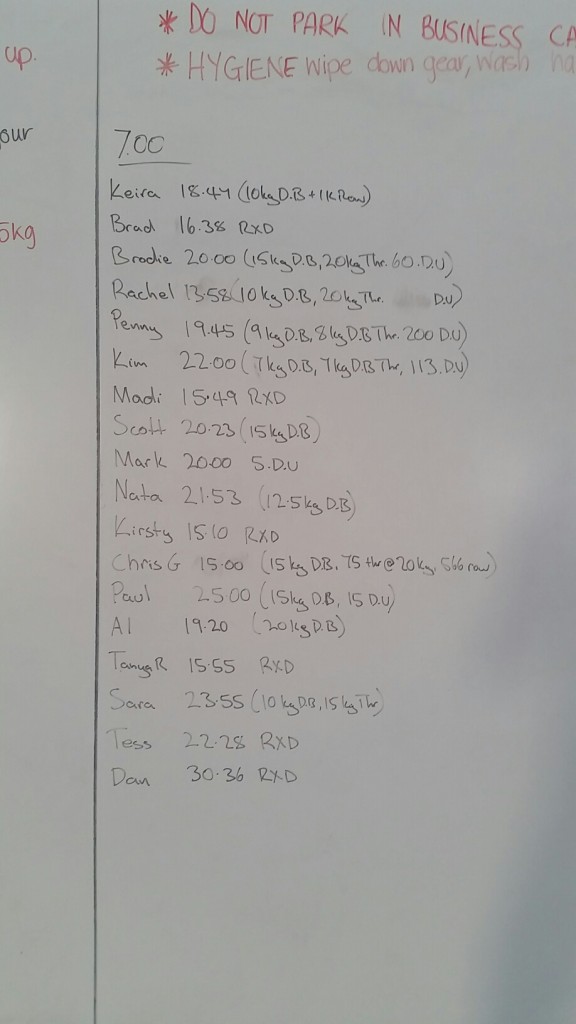 * DO NOT PARK IN BUSINESS CA
up.
* HYGIENE wipe down gear, wash ha
our
7.00
5kg
Keira 18.47 (10kg D.B + 1K Row)
Brad 16.38 RXD
Brodie 20.00 (15kg D.B, 20kg Thr. 60. D.U)
Rachel 13.58 (10kg D.B, 20kg Thr. D.U)
Penny 19.45 (9kg D.B, 8kg D.B Thr. 200 D.U)
Kim 22.00 (7kg D.B, 7kg D.B Thr, 113. D.U)
Madi 15.49 RXD
Scott 20.23 (15kg D.B)
Mark 20.00 S.D.U
Nata 21.53 (12.5kg D.B)
Kirsty 15.10 RXD
Chris G 15.00 (15kg DB, 75 thr @ 20kg, 566 row)
Paul 25.00 (15kg D.B, 15 D.U)
Al 19.20 (20kg D.B)
Tanya R 15.55 RXD
Sara 23.55 (10kg D.B, 15kg Thr)
Tess 22.28 RXD
Dan 30.36 RXD